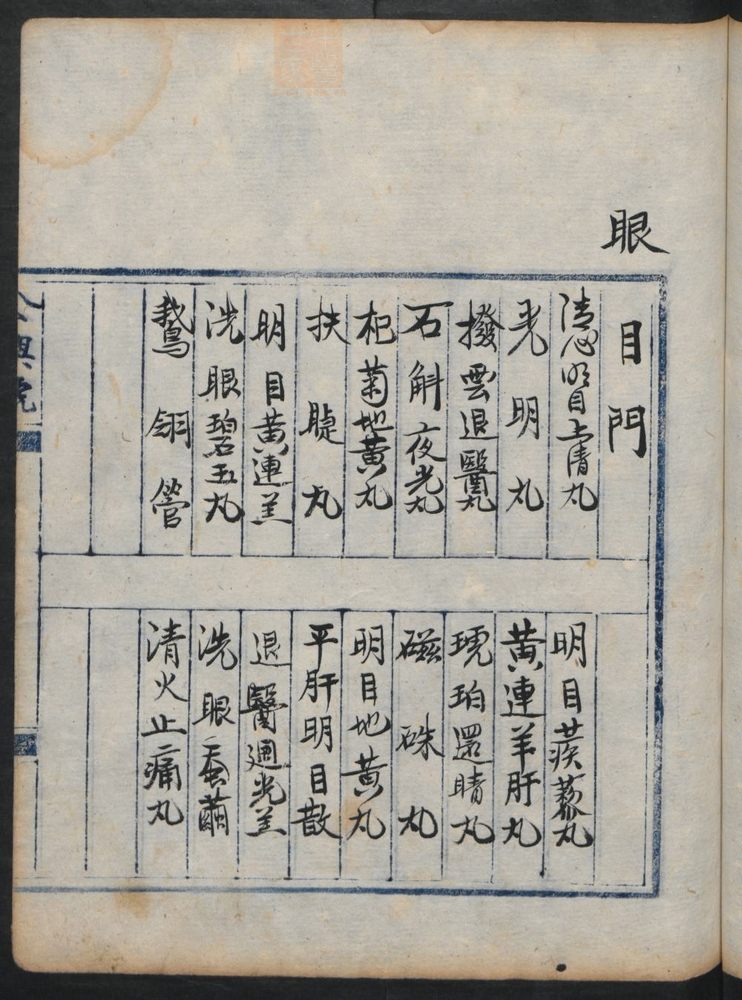 眼
目門
清心明目上清丸
光明丸
撥雲退醫丸
石斛夜光丸
杞菊地黃丸
扶睫丸
明目黃連羔
洗眼碧玉丸
鵞翎管
明目蒺藜丸
黃連羊肝丸
琥珀還睛丸
磁硃丸
明目地黃丸
平肝明目散
退醫迴光羔
洗眼蚕繭
清火止痛丸